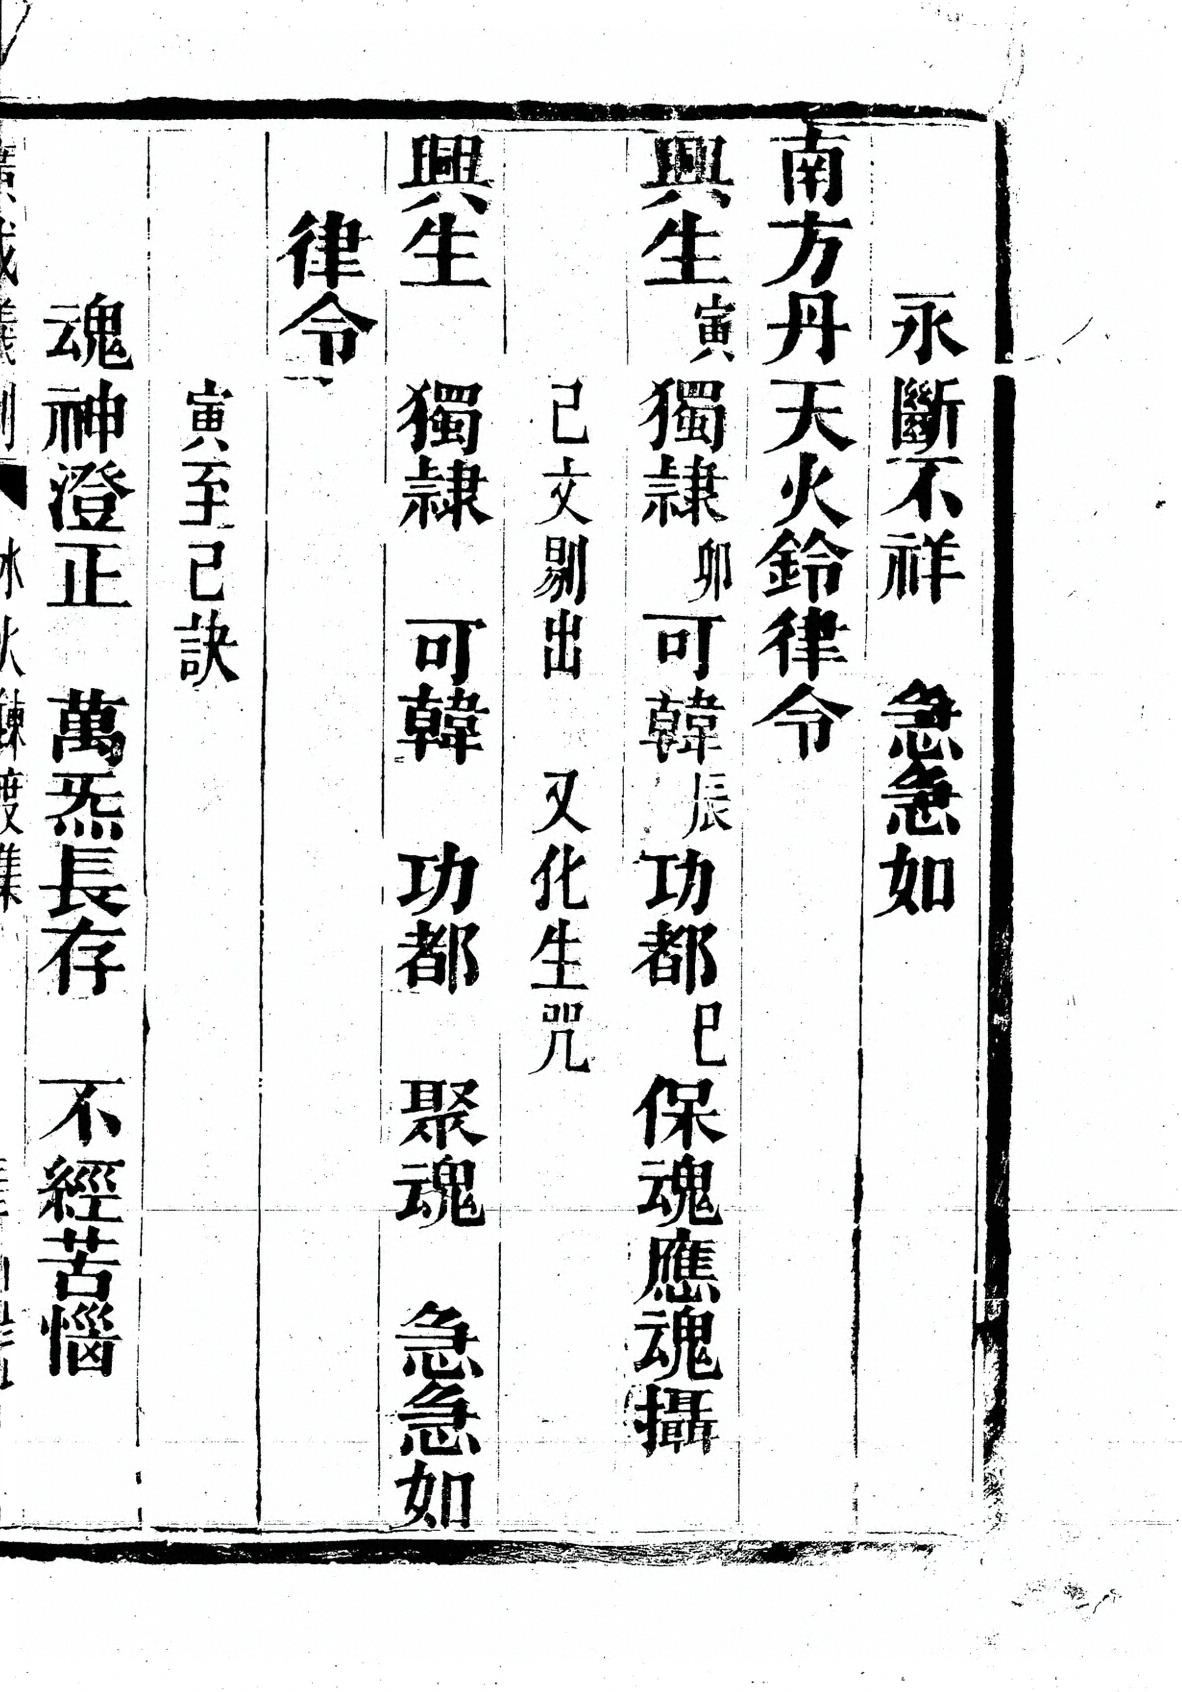 永斷不祥　急急如
南方丹天火鈴律令
興生寅獨隷卯可韓辰功都巳保魂應魂攝
己文剔出　又化生咒
興生　獨隷　可韓　功都　聚魂　急急如
律令
寅至己訣
魂神澄正　萬炁長存　不經苦惱